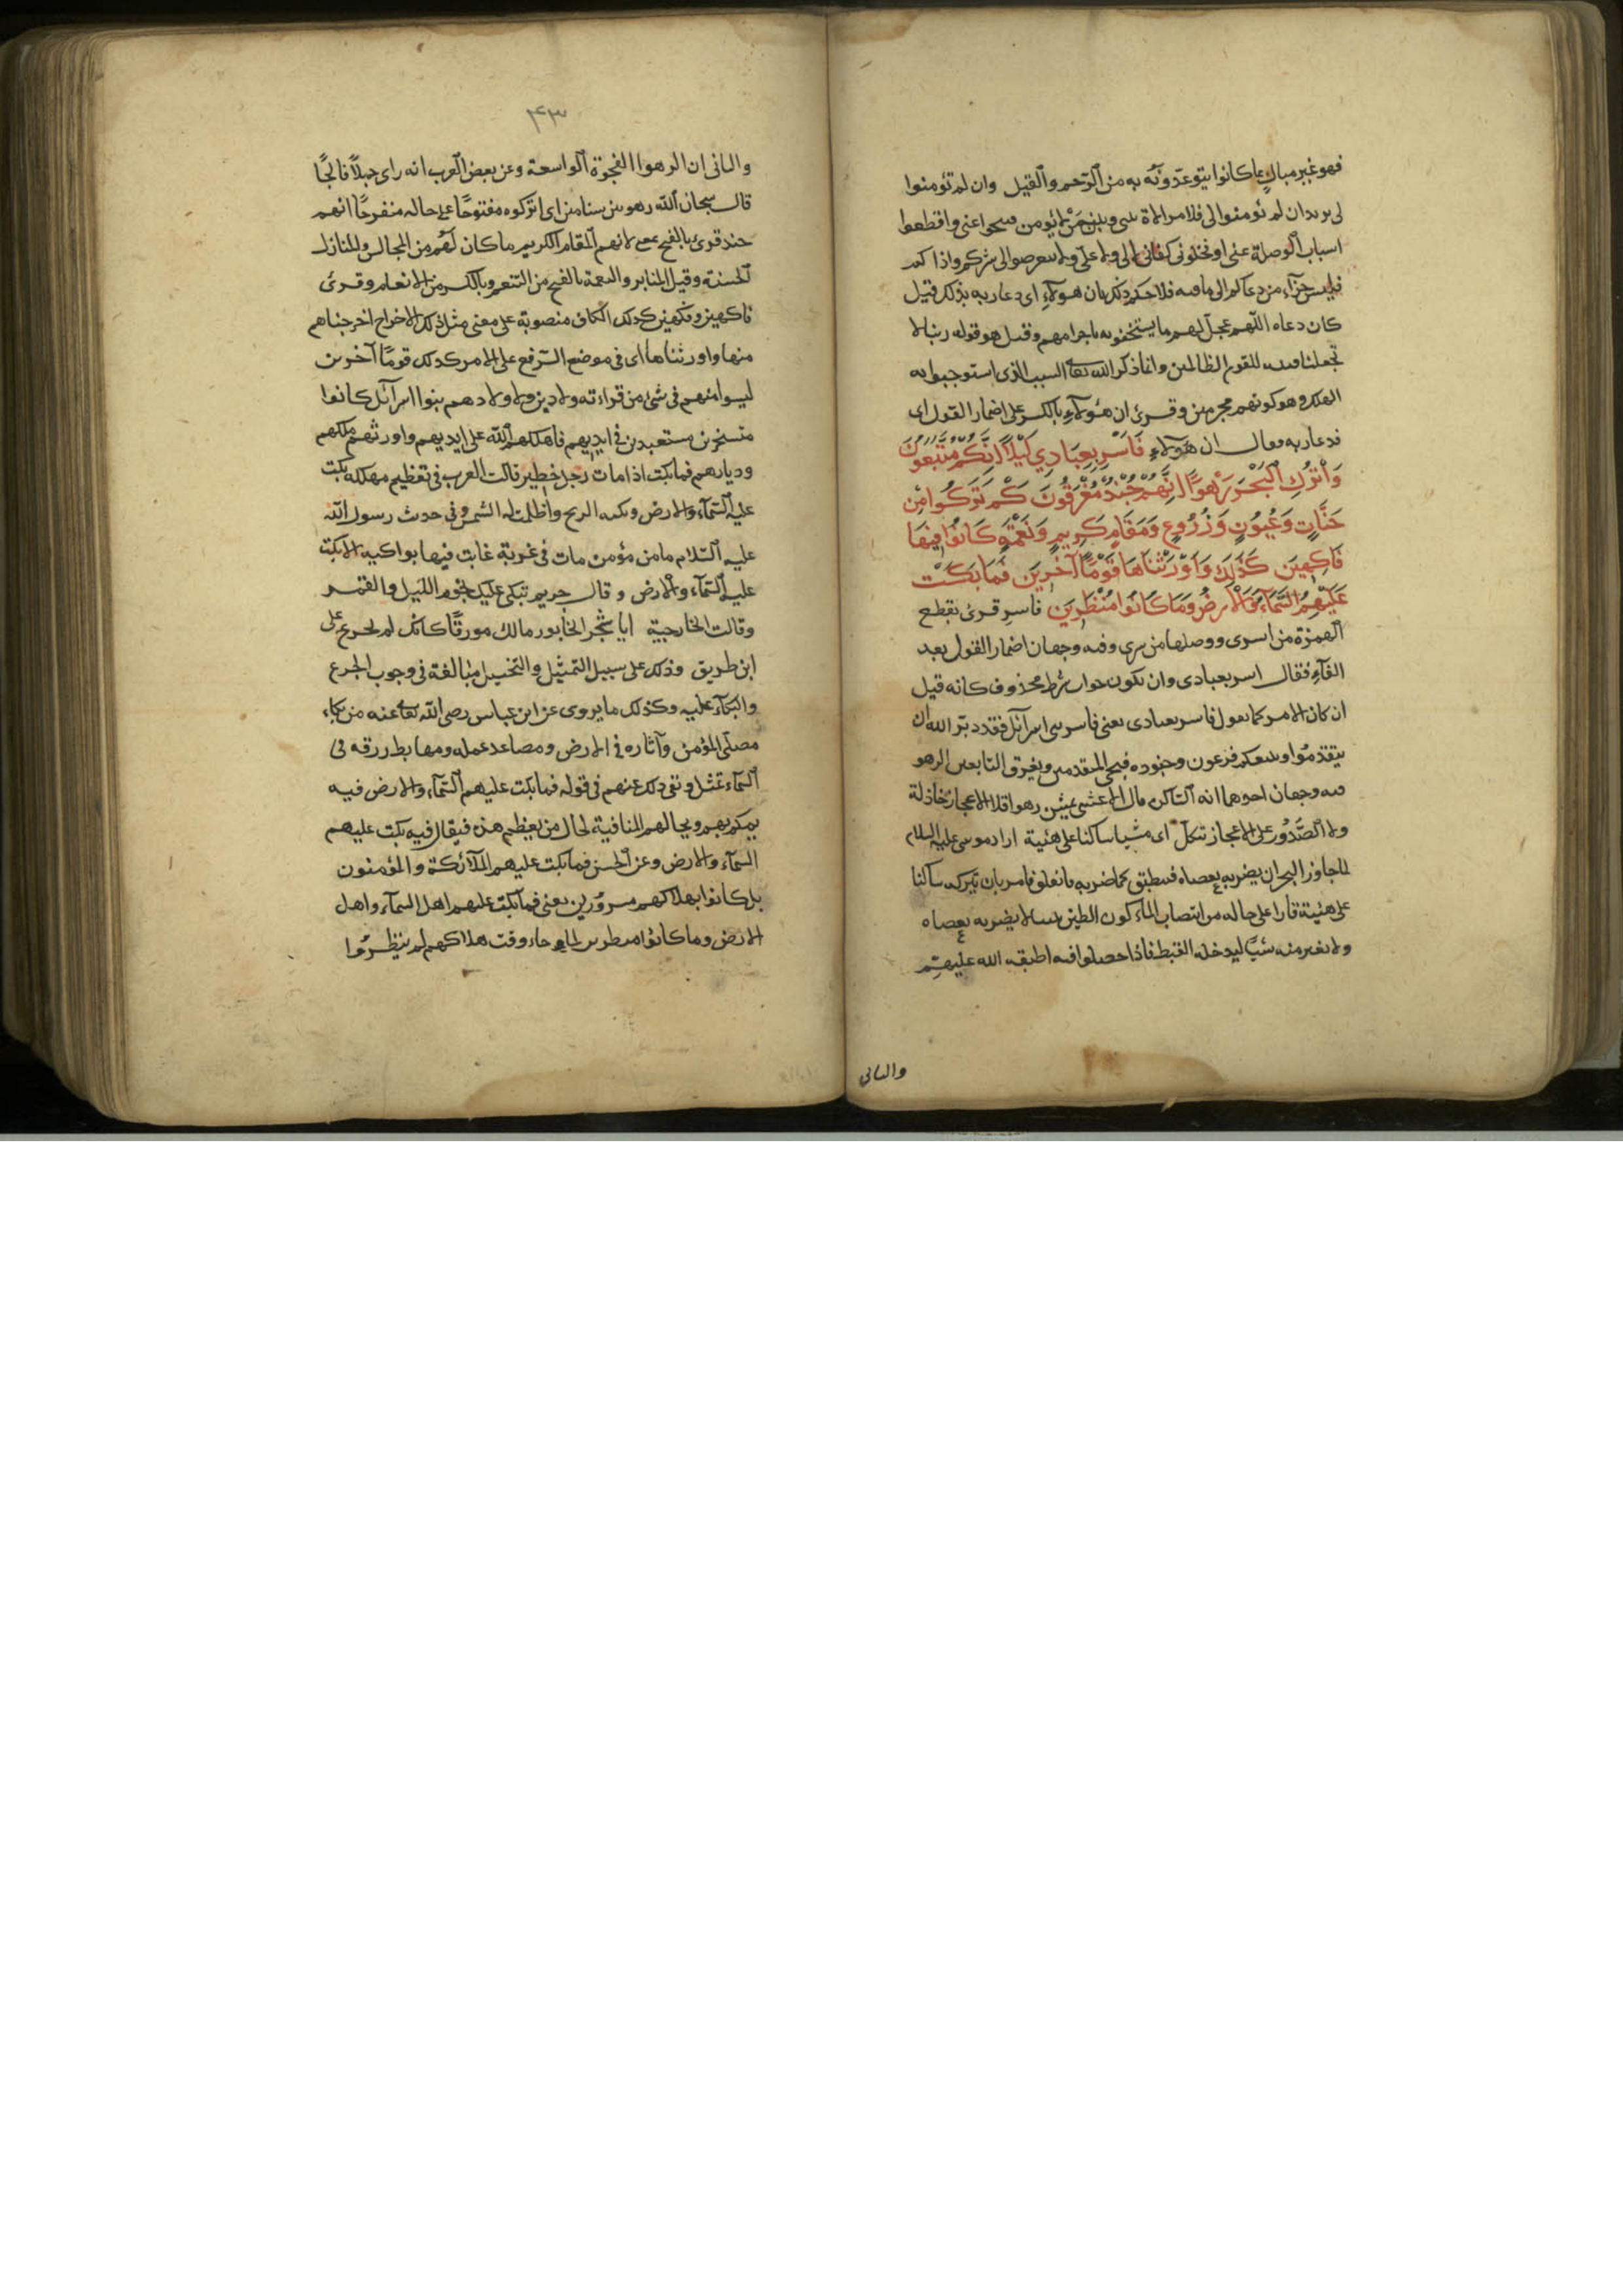 فهو غير مبال بما كانوا يتوعدونه به من الرحم والقيل وان لم تؤمنوا
لى يريد ان لم تؤمنوا لى فلا موالاة بينى وبين من لا يؤمن فتنحوا عنى واقطعوا
اسباب الوصلة عنى او فخلونى كفافا لا لى ولا على ولا تتعرضوا الى بشركم واذا كم
فليس جزاء من دعاكم الى ما فيه فلاحكم ذلك بان هؤلاء اى دعا ربه بذلك قيل
كان دعاه اللهم عجل لهم ما يستحقونه باجرامهم وقيل هو قوله ربنا لا
تجعلنا فتنه للقوم الظالمين وانما ذكر الله تعا السبب الذى استوجبوا به
الهلك وهو كونهم مجرمين وقرئ ان هؤلاء بالكسر على اضمار القول اى
فدعا ربه فقال ان هؤلاء فَاَسْرِ بِعِبَادِي لَيْلًا اِنَّكُمْ مُتَّبَعُونَ
وَاتْرُكِ الْبَحْرَ رَهْوًا اِنَّهُمْ جُنْدٌ مُغْرَقُونَ كَمْ تَرَكُوا مِن
جَنَّاتٍ وَعُيُونٍ وَزُرُوعٍ وَمَقَامٍ كَرِيمٍ وَنَعْمَةٍ كَانُوا فِيهَا
فَاكِهِينَ كَذَلِكَ وَاَوْرَثْنَاهَا قَوْمًا آخَرِينَ فَمَا بَكَتْ
عَلَيْهِمُ السَّمَآءُ وَالْاَرْضُ وَمَا كَانُوا مُنْظَرِينَ فاسر قرئ بقطع
الهمزة من اسرى ووصلها من سرى وفيه وجهان اضمار القول بعد
الفآء فقال اسر بعبادى وان يكون جواب شرط محذوف كانه قيل
ان كان الامر كما تقول فاسر بعبادى يعنى فاسر ببنى اسرآئل فقد دبر الله ان
تتقدموا ويتبعكم فرعون وجنوده فينجى المتقدمين ويغرق التابعين الرهو
فيه وجهان احدهما انه الساكن قال الاعشى يمشين رهوا فلا الاعجاز خاذلة
ولا الصدور على الاعجاز تتكل اى مشيا ساكنا على هئية اراد موسى عليه السلام
لما جاوز البحر ان يضربه بعصاه فينطبق كما ضربه فانفلق فامر بان يتركه ساكنا
على هئية قارا على حاله من انتصاب الماء كون الطريق يبسا لا يضربه بعصاه
ولا يغير منه شيًا ليدخله القبط فاذا حصلوا فيه اطبقه الله عليهم
والثانى
٤٣
والثانى ان الرهو الفجوة الواسعة وعن بعض العرب انه راى جملًا فالجًا
قال سبحان الله رهو بين سنامين اى اتركوه مفتوحًا على حاله منفرجًا انهم
جند قرئ بالفتح بمعنى لانهم المقام الكريم ما كان لهم من المجالس والمنازل
الحسنة وقيل المنابر والنعمة بالفتح من التنعم وبالكسر من الانعام وقرئ
فاكهين وفكهين كذلك الكاف منصوبة على معنى مثل ذلك الاخراج اخرجناهم
منها واورثناها اى فى موضع الرفع على الامر كذلك قومًا آخرين
ليسوا منهم فى شئ من قراءته ولا دين ولا ولا دهم بنوا اسرآئل كانوا
متسخرين مستعبدين فى ايديهم فاهلكهم الله على ايديهم واورثهم ملكهم
وديارهم فما بكت اذا مات رجل خطير قالت العرب فى تعظيم مهلكه بكت
عليه السمآء والارض وبكته الريح واظلمت له الشمس وفى حدث رسول الله
عليه السلام ما من مؤمن مات فى غربة غابت فيها بواكيه الا بكت
عليه السمآء والارض وقال جرير تبكى عليك نجوم الليل والقمر
وقالت الخارجية ايا شجر الخابور مالك مورقًا كانك لم تجزع على
ابن طريق وذلك على سبيل التمثيل والتخييل مبالغة فى وجوب الجزع
والبكآء عليه وكذلك ما يروى عن ابن عباس رضى الله تعا عنه من بكاء
مصلى المؤمن وآثاره فى الارض ومصاعد عمله ومهابط رزقه فى
السمآء تمثيل ونفى ذلك عنهم فى قوله فما بكت عليهم السمآء والارض فيه
تهكم بهم وبحالهم المنافية لحال من يعظم هذه فيقال فيه بكت عليهم
السمآء والارض وعن الحسن فما بكت عليهم الملآئكة والمؤمنون
بل كانوا بهلاكهم مسرورين يعنى فما بكت عليهم اهل السمآء واهل
الارض وما كانوا منظرين لما جاء وقت هلاكهم لم ينظروا